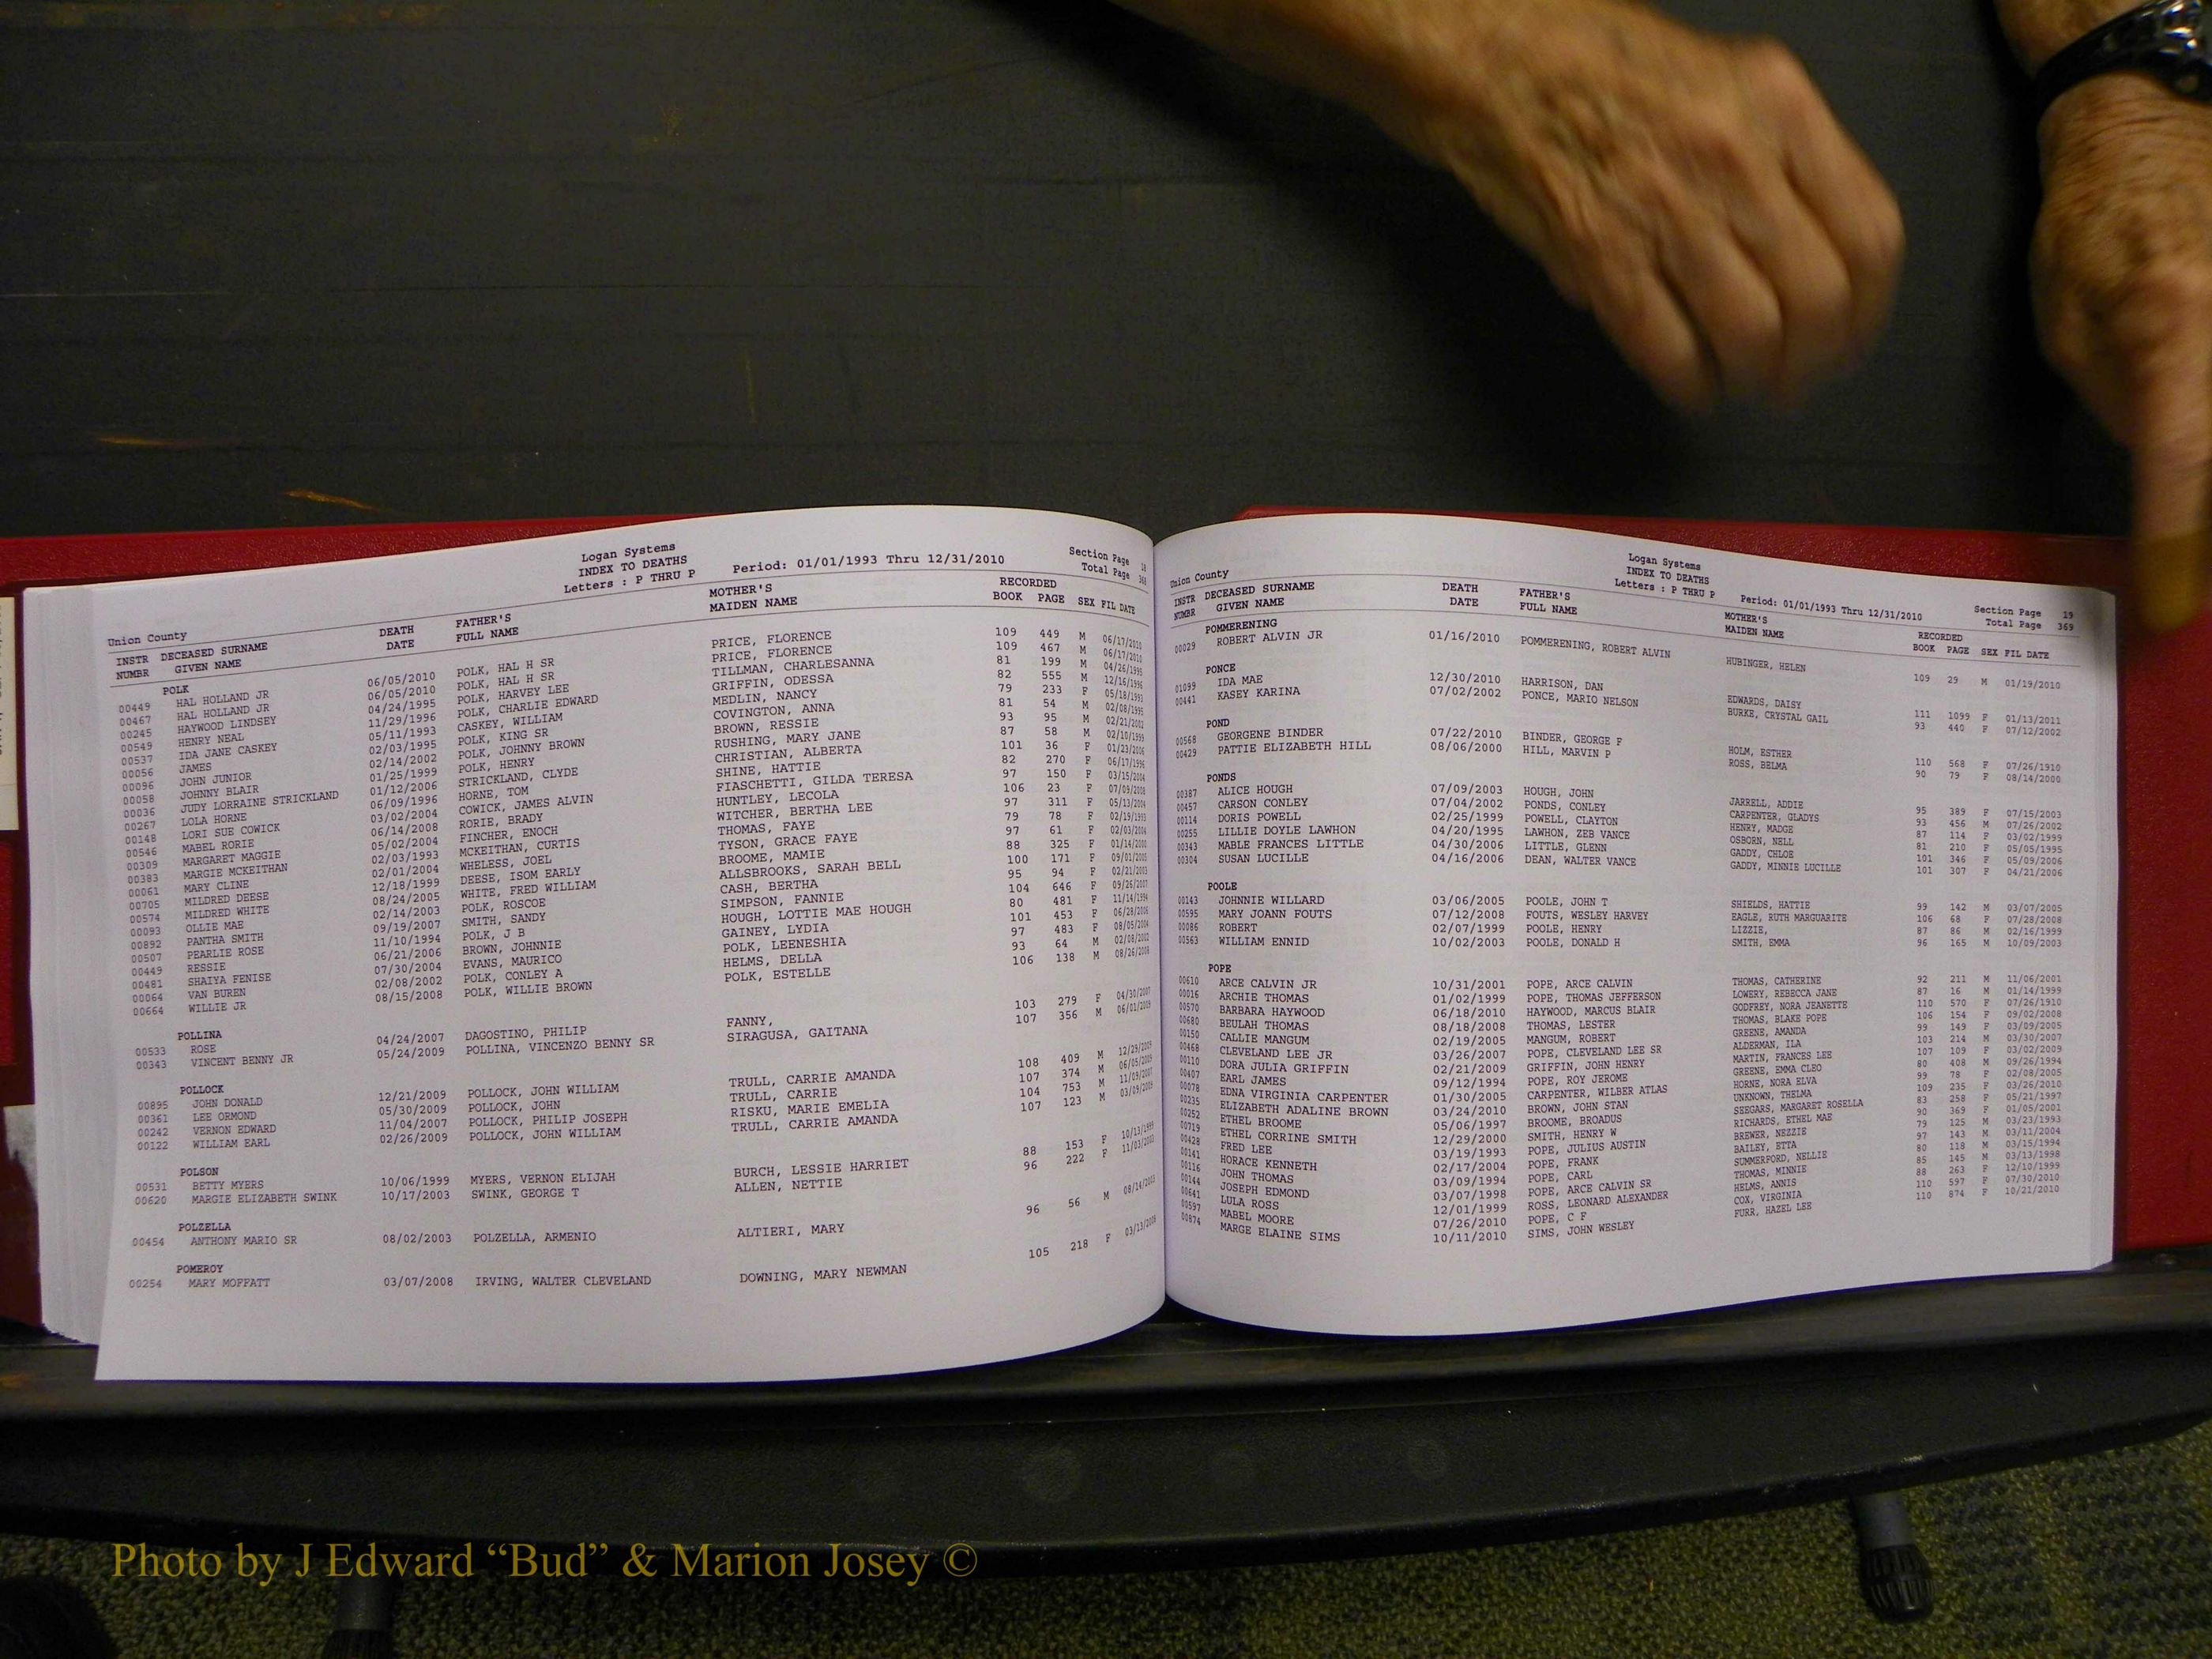 Logan Systems
INDEX TO DEATHS
Letters : P THRU P Period: 01/01/1993 Thru 12/31/2010
Section Page 18
Total Page 368
Union County
INSTR DECEASED SURNAME DEATH FATHER'S MOTHER'S RECORDED
NUMBR GIVEN NAME DATE FULL NAME MAIDEN NAME BOOK PAGE SEX FIL DATE
POLK
00449 HAL HOLLAND JR 06/05/2010 POLK, HAL H SR PRICE, FLORENCE 109 449 M 06/17/2010
00467 HAL HOLLAND JR 06/05/2010 POLK, HAL H SR PRICE, FLORENCE 109 467 M 06/17/2010
00245 HAYWOOD LINDSEY 04/24/1995 POLK, HARVEY LEE TILLMAN, CHARLESANNA 81 199 M 04/26/1995
00549 HENRY NEAL 11/29/1996 POLK, CHARLIE EDWARD GRIFFIN, ODESSA 82 555 M 12/16/1996
00537 IDA JANE CASKEY 05/11/1993 CASKEY, WILLIAM MEDLIN, NANCY 79 233 F 05/18/1993
00056 JAMES 02/03/1995 POLK, KING SR COVINGTON, ANNA 81 54 M 02/08/1995
00096 JOHN JUNIOR 02/14/2002 POLK, JOHNNY BROWN BROWN, RESSIE 93 95 M 02/21/2002
00058 JOHNNY BLAIR 01/25/1999 POLK, HENRY RUSHING, MARY JANE 87 58 M 02/10/1999
00036 JUDY LORRAINE STRICKLAND 01/12/2006 STRICKLAND, CLYDE CHRISTIAN, ALBERTA 101 36 F 01/23/2006
00267 LOLA HORNE 06/09/1996 HORNE, TOM SHINE, HATTIE 82 270 F 06/17/1996
00148 LORI SUE COWICK 03/02/2004 COWICK, JAMES ALVIN FIASCHETTI, GILDA TERESA 97 150 F 03/15/2004
00546 MABEL RORIE 06/14/2008 RORIE, BRADY HUNTLEY, LECOLA 106 23 F 07/09/2008
00309 MARGARET MAGGIE 05/02/2004 FINCHER, ENOCH WITCHER, BERTHA LEE 97 311 F 05/13/2004
00383 MARGIE MCKEITHAN 02/03/1993 MCKEITHAN, CURTIS THOMAS, FAYE 79 78 F 02/19/1993
00061 MARY CLINE 02/01/2004 WHELESS, JOEL TYSON, GRACE FAYE 97 61 F 02/03/2004
00705 MILDRED DEESE 12/18/1999 DEESE, ISOM EARLY BROOME, MAMIE 88 325 F 01/14/2000
00574 MILDRED WHITE 08/24/2005 WHITE, FRED WILLIAM ALLSBROOKS, SARAH BELL 100 171 F 09/01/2005
00093 OLLIE MAE 02/14/2003 POLK, ROSCOE CASH, BERTHA 95 94 F 02/21/2003
00892 PANTHA SMITH 09/19/2007 SMITH, SANDY SIMPSON, FANNIE 104 646 F 09/26/2007
00507 PEARLIE ROSE 11/10/1994 POLK, J B HOUGH, LOTTIE MAE HOUGH 80 481 F 11/14/1994
00449 RESSIE 06/21/2006 BROWN, JOHNNIE GAINEY, LYDIA 101 453 F 06/28/2006
00481 SHAIYA FENISE 07/30/2004 EVANS, MAURICO POLK, LEENESHIA 97 483 F 08/05/2004
00064 VAN BUREN 02/08/2002 POLK, CONLEY A HELMS, DELLA 93 64 M 02/08/2002
00664 WILLIE JR 08/15/2008 POLK, WILLIE BROWN POLK, ESTELLE 106 138 M 08/26/2008
POLLINA
00533 ROSE 04/24/2007 DAGOSTINO, PHILIP FANNY, 103 279 F 04/30/2007
00343 VINCENT BENNY JR 05/24/2009 POLLINA, VINCENZO BENNY SR SIRAGUSA, GAITANA 107 356 M 06/01/2009
POLLOCK
00895 JOHN DONALD 12/21/2009 POLLOCK, JOHN WILLIAM TRULL, CARRIE AMANDA 108 409 M 12/29/2009
00361 LEE ORMOND 05/30/2009 POLLOCK, JOHN TRULL, CARRIE 107 374 M 06/05/2009
00242 VERNON EDWARD 11/04/2007 POLLOCK, PHILIP JOSEPH RISKU, MARIE EMELIA 104 753 M 11/09/2007
00122 WILLIAM EARL 02/26/2009 POLLOCK, JOHN WILLIAM TRULL, CARRIE AMANDA 107 123 M 03/09/2009
POLSON
00531 BETTY MYERS 10/06/1999 MYERS, VERNON ELIJAH BURCH, LESSIE HARRIET 88 153 F 10/13/1999
00620 MARGIE ELIZABETH SWINK 10/17/2003 SWINK, GEORGE T ALLEN, NETTIE 96 222 F 11/03/2003
POLZELLA
00454 ANTHONY MARIO SR 08/02/2003 POLZELLA, ARMENIO ALTIERI, MARY 96 56 M 08/14/2003
POMEROY
00254 MARY MOFFATT 03/07/2008 IRVING, WALTER CLEVELAND DOWNING, MARY NEWMAN 105 218 F 03/13/2008
Logan Systems
INDEX TO DEATHS
Letters : P THRU P Period: 01/01/1993 Thru 12/31/2010
Section Page 19
Total Page 369
Union County
INSTR DECEASED SURNAME DEATH FATHER'S MOTHER'S RECORDED
NUMBR GIVEN NAME DATE FULL NAME MAIDEN NAME BOOK PAGE SEX FIL DATE
POMMERENING
00029 ROBERT ALVIN JR 01/16/2010 POMMERENING, ROBERT ALVIN HUBINGER, HELEN 109 29 M 01/19/2010
PONCE
01099 IDA MAE 12/30/2010 HARRISON, DAN EDWARDS, DAISY 111 1099 F 01/13/2011
00441 KASEY KARINA 07/02/2002 PONCE, MARIO NELSON BURKE, CRYSTAL GAIL 93 440 F 07/12/2002
POND
00568 GEORGENE BINDER 07/22/2010 BINDER, GEORGE F HOLM, ESTHER 110 568 F 07/26/1910
00429 PATTIE ELIZABETH HILL 08/06/2000 HILL, MARVIN P ROSS, BELMA 90 79 F 08/14/2000
PONDS
00387 ALICE HOUGH 07/09/2003 HOUGH, JOHN JARRELL, ADDIE 95 389 F 07/15/2003
00457 CARSON CONLEY 07/04/2002 PONDS, CONLEY CARPENTER, GLADYS 93 456 M 07/26/2002
00114 DORIS POWELL 02/25/1999 POWELL, CLAYTON HENRY, MADGE 87 114 F 03/02/1999
00255 LILLIE DOYLE LAWHON 04/20/1995 LAWHON, ZEB VANCE OSBORN, NELL 81 210 F 05/05/1995
00343 MABLE FRANCES LITTLE 04/30/2006 LITTLE, GLENN GADDY, CHLOE 101 346 F 05/09/2006
00304 SUSAN LUCILLE 04/16/2006 DEAN, WALTER VANCE GADDY, MINNIE LUCILLE 101 307 F 04/21/2006
POOLE
00143 JOHNNIE WILLARD 03/06/2005 POOLE, JOHN T SHIELDS, HATTIE 99 142 M 03/07/2005
00595 MARY JOANN FOUTS 07/12/2008 FOUTS, WESLEY HARVEY EAGLE, RUTH MARGUARITE 106 68 F 07/28/2008
00086 ROBERT 02/07/1999 POOLE, HENRY LIZZIE, 87 86 M 02/16/1999
00563 WILLIAM ENNID 10/02/2003 POOLE, DONALD H SMITH, EMMA 96 165 M 10/09/2003
POPE
00610 ARCE CALVIN JR 10/31/2001 POPE, ARCE CALVIN THOMAS, CATHERINE 92 211 M 11/06/2001
00016 ARCHIE THOMAS 01/02/1999 POPE, THOMAS JEFFERSON LOWERY, REBECCA JANE 87 16 M 01/14/1999
00570 BARBARA HAYWOOD 06/18/2010 HAYWOOD, MARCUS BLAIR GODFREY, NORA JEANETTE 110 570 F 07/26/1910
00680 BEULAH THOMAS 08/18/2008 THOMAS, LESTER THOMAS, BLAKE POPE 106 154 F 09/02/2008
00150 CALLIE MANGUM 02/19/2005 MANGUM, ROBERT GREENE, AMANDA 99 149 F 03/09/2005
00468 CLEVELAND LEE JR 03/26/2007 POPE, CLEVELAND LEE SR ALDERMAN, ILA 103 214 M 03/30/2007
00110 DORA JULIA GRIFFIN 02/21/2009 GRIFFIN, JOHN HENRY MARTIN, FRANCES LEE 107 109 F 03/02/2009
00407 EARL JAMES 09/12/1994 POPE, ROY JEROME GREENE, EMMA CLEO 80 408 M 09/26/1994
00078 EDNA VIRGINIA CARPENTER 01/30/2005 CARPENTER, WILBER ATLAS HORNE, NORA ELVA 99 78 F 02/08/2005
00235 ELIZABETH ADALINE BROWN 03/24/2010 BROWN, JOHN STAN UNKNOWN, THELMA 109 235 F 03/26/2010
00252 ETHEL BROOME 05/06/1997 BROOME, BROADUS SEEGARS, MARGARET ROSELLA 83 258 F 05/21/1997
00719 ETHEL CORRINE SMITH 12/29/2000 SMITH, HENRY W RICHARDS, ETHEL MAE 90 369 F 01/05/2001
00428 FRED LEE 03/19/1993 POPE, JULIUS AUSTIN BREWER, NEZZIE 79 125 M 03/23/1993
00141 HORACE KENNETH 02/17/2004 POPE, FRANK BAILEY, ETTA 97 143 M 03/11/2004
00116 JOHN THOMAS 03/09/1994 POPE, CARL SUMMERFORD, NELLIE 80 118 M 03/15/1994
00144 JOSEPH EDMOND 03/07/1998 POPE, ARCE CALVIN SR THOMAS, MINNIE 85 145 M 03/13/1998
00641 LULA ROSS 12/01/1999 ROSS, LEONARD ALEXANDER HELMS, ANNIS 88 263 F 12/10/1999
00597 MABEL MOORE 07/26/2010 POPE, C F COX, VIRGINIA 110 597 F 07/30/2010
00874 MARGE ELAINE SIMS 10/11/2010 SIMS, JOHN WESLEY FURR, HAZEL LEE 110 874 F 10/21/2010
Photo by J Edward “Bud” & Marion Josey ©